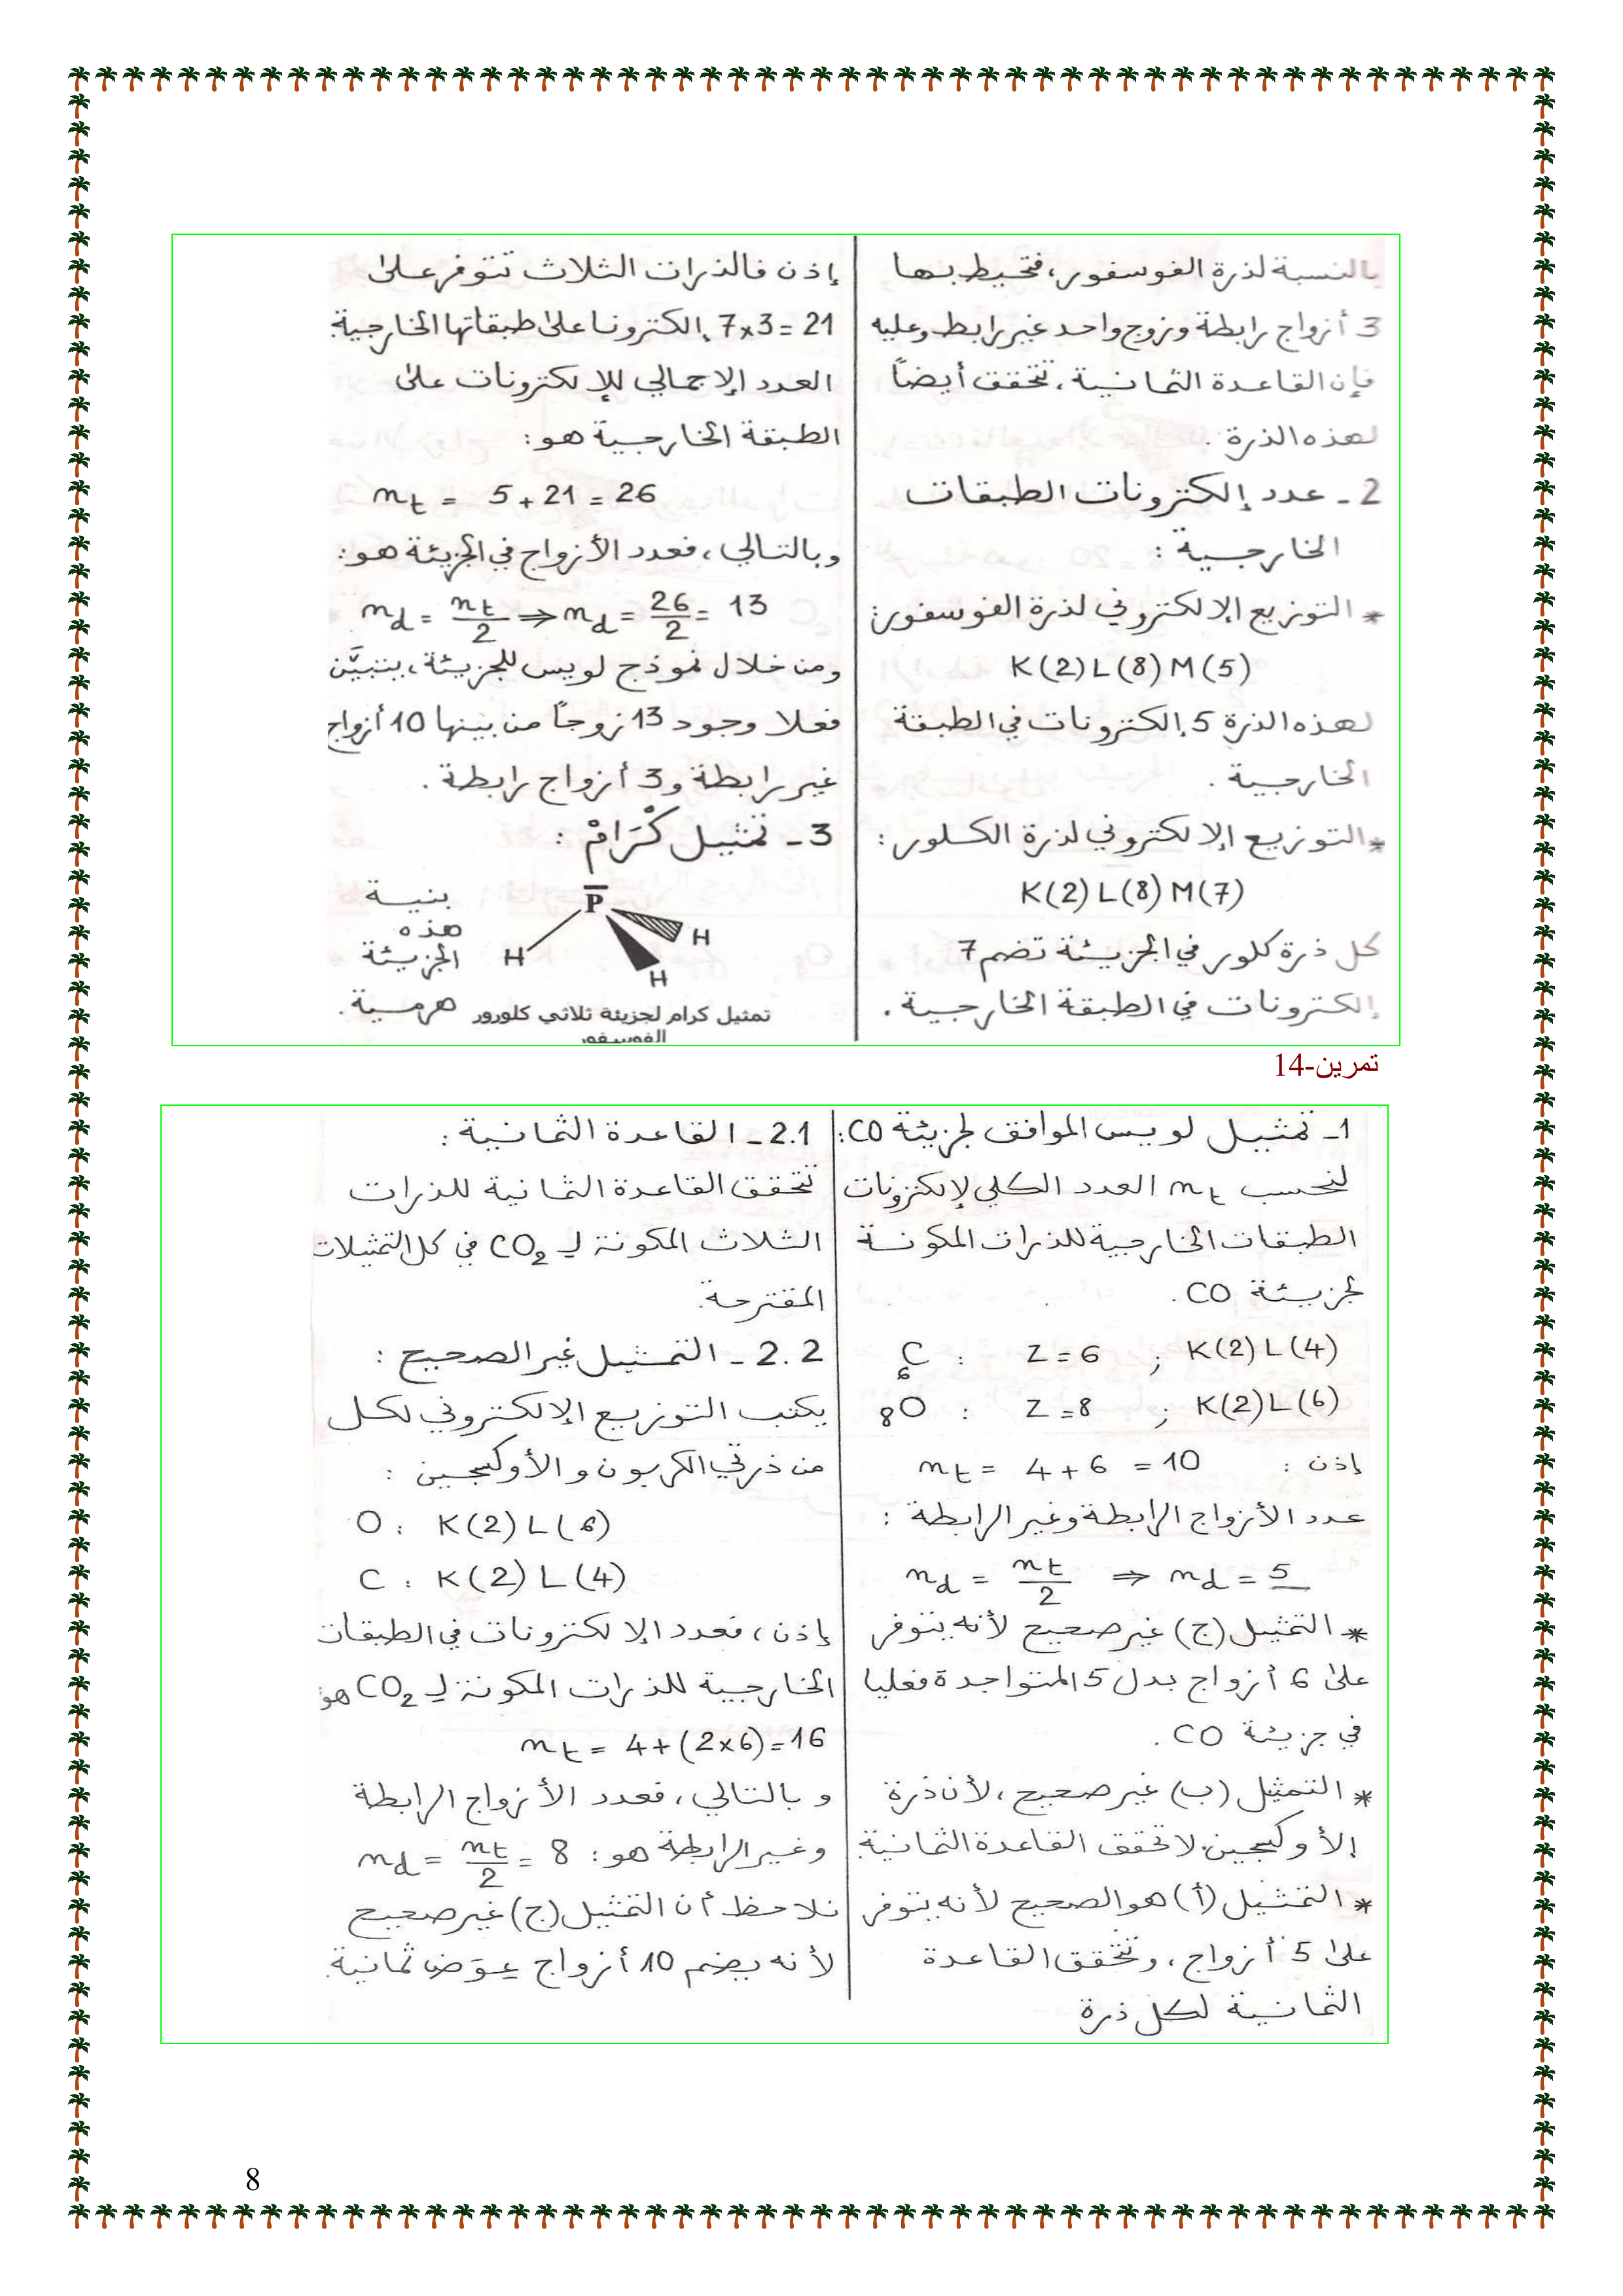 بالنسبة لذرة الفوسفور، فتحيط بها
3 أزواج رابطة وزوج واحد غير رابط وعليه
فإن القاعدة الثمانية، تتحقق أيضاً
لهذه الذرة.
2 - عدد إلكترونات الطبقات
الخارجية :
* التوزيع الإلكتروني لذرة الفوسفور:
K(2) L(8) M(5)
لهذه الذرة 5 إلكترونات في الطبقة
الخارجية .
* التوزيع الإلكتروني لذرة الكلور :
K(2) L(8) M(7)
كل ذرة كلور في الجزيئة تضم 7
إلكترونات في الطبقة الخارجية .
إذن فالذرات الثلاث تتوفر على
7×3 = 21 إلكترونا على طبقاتها الخارجية.
العدد الإجمالي للإلكترونات على
الطبقة الخارجية هو:
nt = 5 + 21 = 26
وبالتالي، فعدد الأزواج في الجزيئة هو:
nd = nt/2 ⇒ nd = 26/2 = 13
ومن خلال نموذج لويس للجزيئة، يتبيَّن
فعلا وجود 13 زوجاً من بينها 10 أزواج
غير رابطة و3 أزواج رابطة .
3 - تمثيل كْرَامْ :
P
H
H
H
بنية
هذه
الجزيئة
هرمية .
تمثيل كرام لجزيئة ثلاثي كلورور
الفوسفور
تمرين-14
1- تمثيل لويس الموافق لجزيئة CO:
لنحسب nt العدد الكلي لإلكترونات
الطبقات الخارجية للذرات المكونة
لجزيئة CO .
6C : Z = 6 ; K(2) L(4)
8O : Z = 8 ; K(2) L(6)
إذن : nt = 4 + 6 = 10
عدد الأزواج الرابطة وغير الرابطة :
nd = nt/2 ⇒ nd = 5
* التمثيل (ج) غير صحيح لأنه يتوفر
على 6 أزواج بدل 5 المتواجدة فعليا
في جزيئة CO .
* التمثيل (ب) غير صحيح، لأن ذرة
الأوكسجين لا تحقق القاعدة الثمانية.
* التمثيل (أ) هو الصحيح لأنه يتوفر
على 5 أزواج ، وتتحقق القاعدة
الثمانية لكل ذرة
2.1 - القاعدة الثمانية :
تتحقق القاعدة الثمانية للذرات
الثلاث المكونة لـ CO2 في كل التمثيلات
المقترحة.
2.2 - التمثيل غير الصحيح :
يكتب التوزيع الإلكتروني لكل
من ذرتي الكربون والأوكسجين :
O : K(2) L(6)
C : K(2) L(4)
إذن ، فعدد الإلكترونات في الطبقات
الخارجية للذرات المكونة لـ CO2 هو
nt = 4 + (2×6) = 16
وبالتالي، فعدد الأزواج الرابطة
وغير الرابطة هو: nd = nt/2 = 8
نلاحظ أن التمثيل (ج) غير صحيح
لأنه يضم 10 أزواج عوض ثمانية.
8